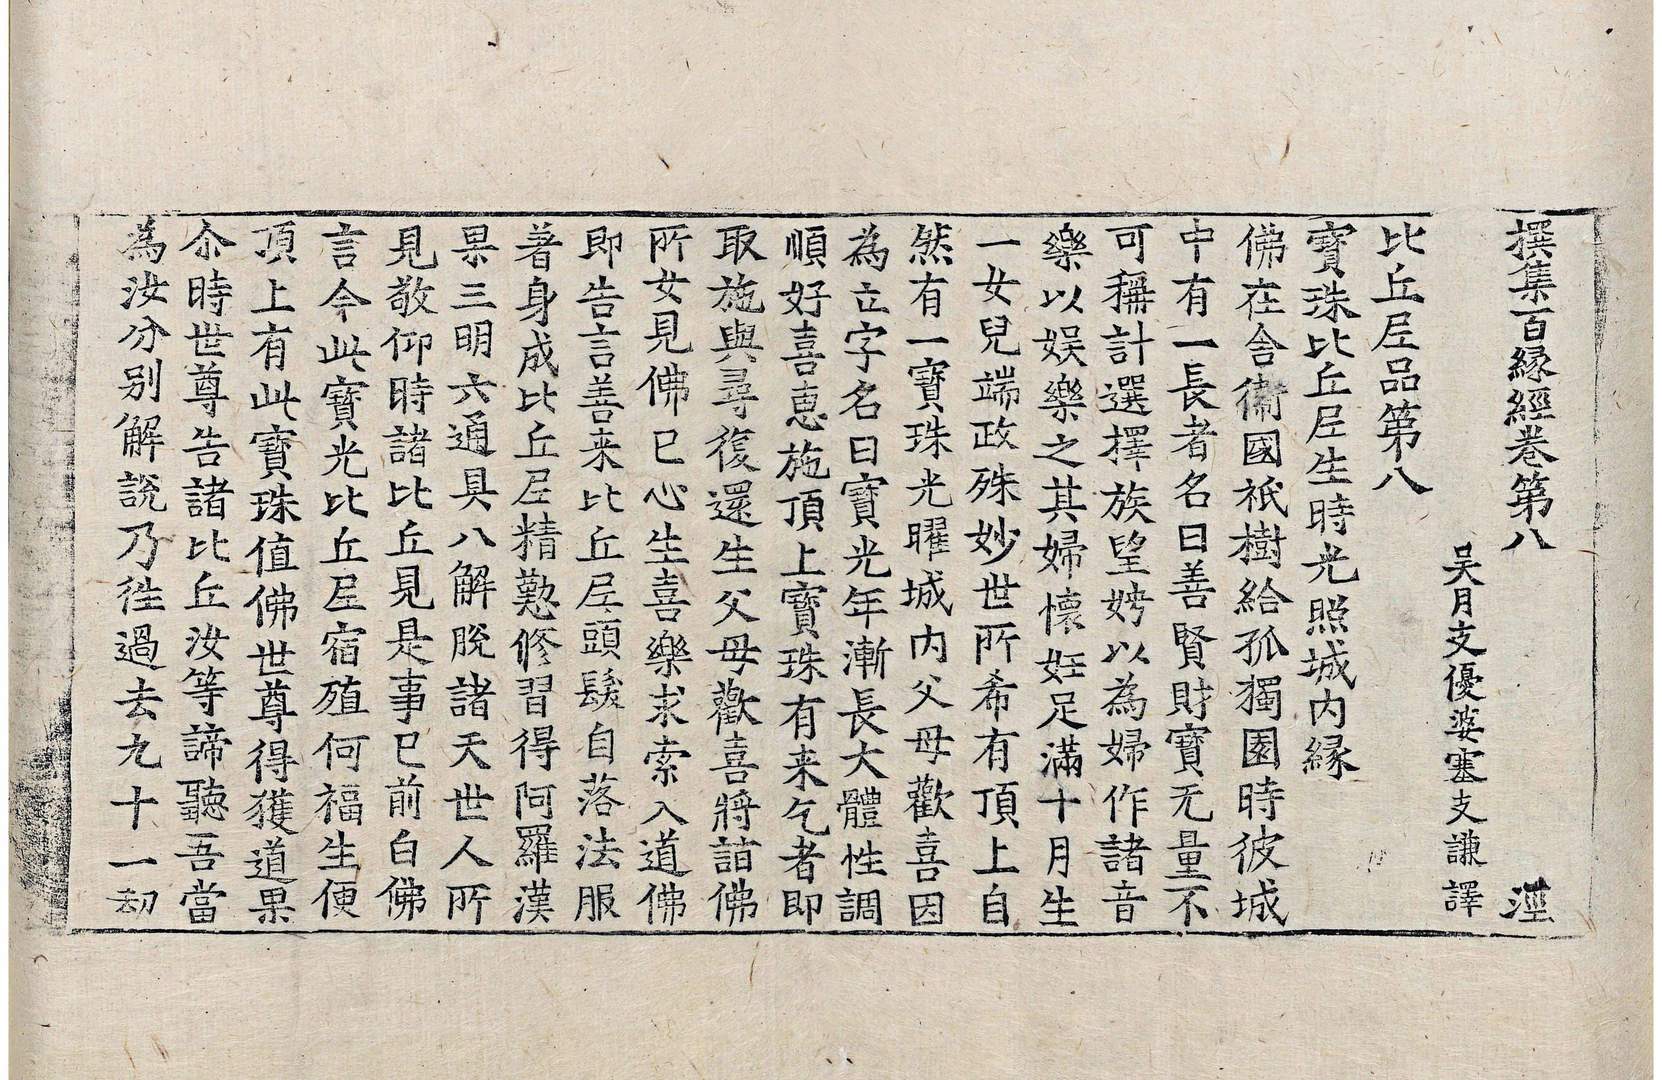 撰集百縁經卷第八 涇
吴月支優婆塞支謙譯
比丘尼品第八
寶珠比丘尼生時光照城内縁
佛在舍衛國祇樹給孤獨園時彼城
中有一長者名曰善賢財寶无量不
可稱計選擇族望娉以為婦作諸音
樂以娱樂之其婦懷妊足滿十月生
一女兒端政殊妙世所希有頂上自
然有一寶珠光曜城内父母歡喜因
為立字名曰寶光年漸長大體性調
順好喜恵施頂上寶珠有来乞者即
取施與尋復還生父母歡喜將詣佛
所女見佛已心生喜樂求索入道佛
即告言善来比丘尼頭髮自落法服
著身成比丘尼精懃修習得阿羅漢
果三明六通具八解脫諸天世人所
見敬仰時諸比丘見是事已前白佛
言今此寶光比丘尼宿殖何福生便
頂上有此寶珠值佛世尊得獲道果
尒時世尊告諸比丘汝等諦聽吾當
為汝分别解說乃徃過去九十一刼